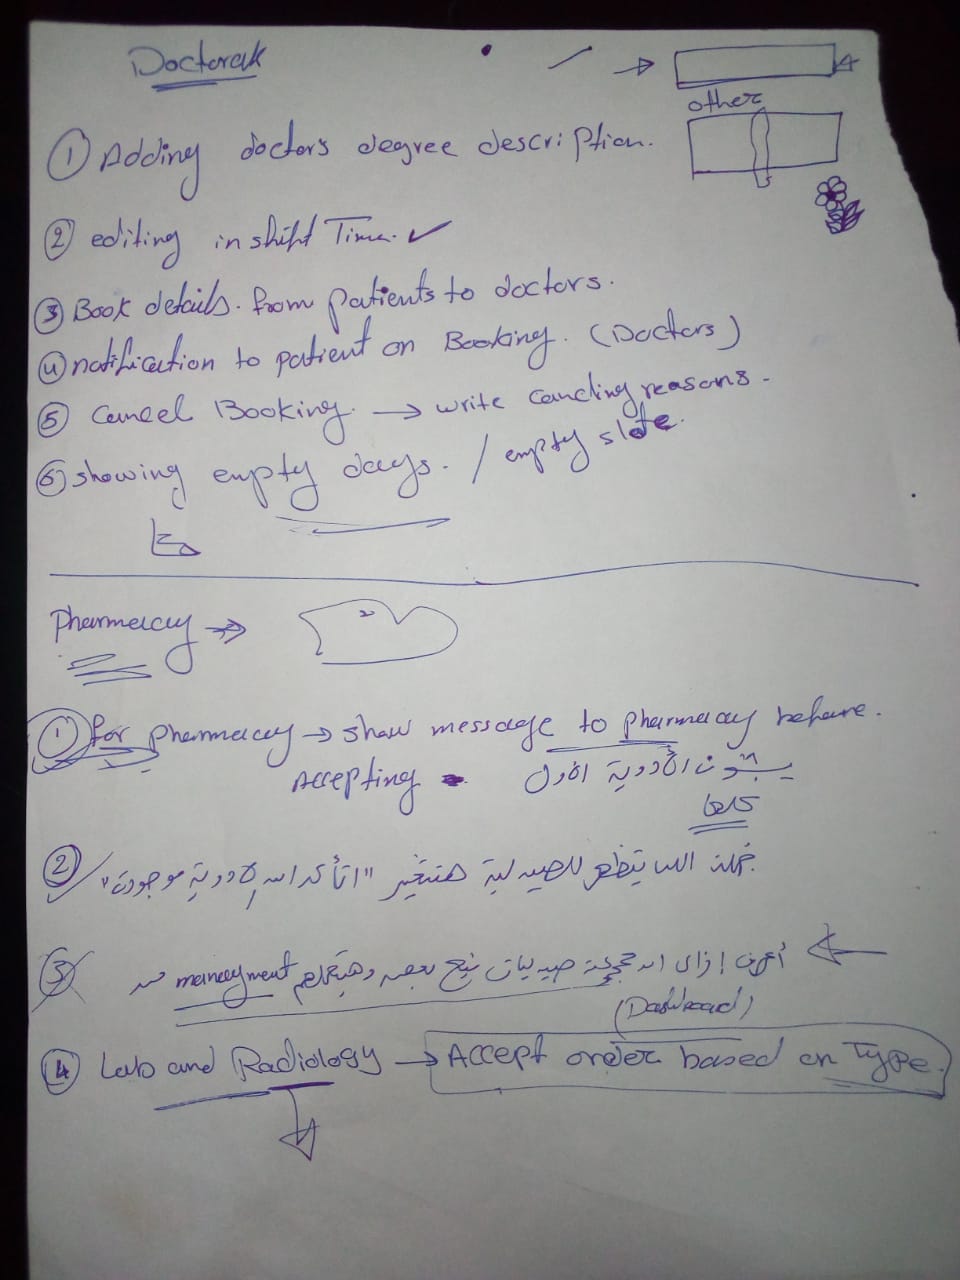 Doctorak
other
① Adding doctors degree description.
② editing in shift Time. ✓
③ Book details. from patients to doctors.
④ notification to patient on Booking. (Doctors)
⑤ Cancel Booking. → write cancling reasons.
⑥ showing empty days. / empty slots.
Pharmacy →
① for pharmacy → show message to pharmacy before.
Accepting
الأدوية الاول
كلها
② جملة اللى بتظهر للصيدلية هتتغير "اتأكد ان الادوية موجودة"
③ أعرف إزاى ان مجموعة صيدليات تبع بعض managment
(Dashboard)
④ Lab and Radiology → Accept order based on Type.